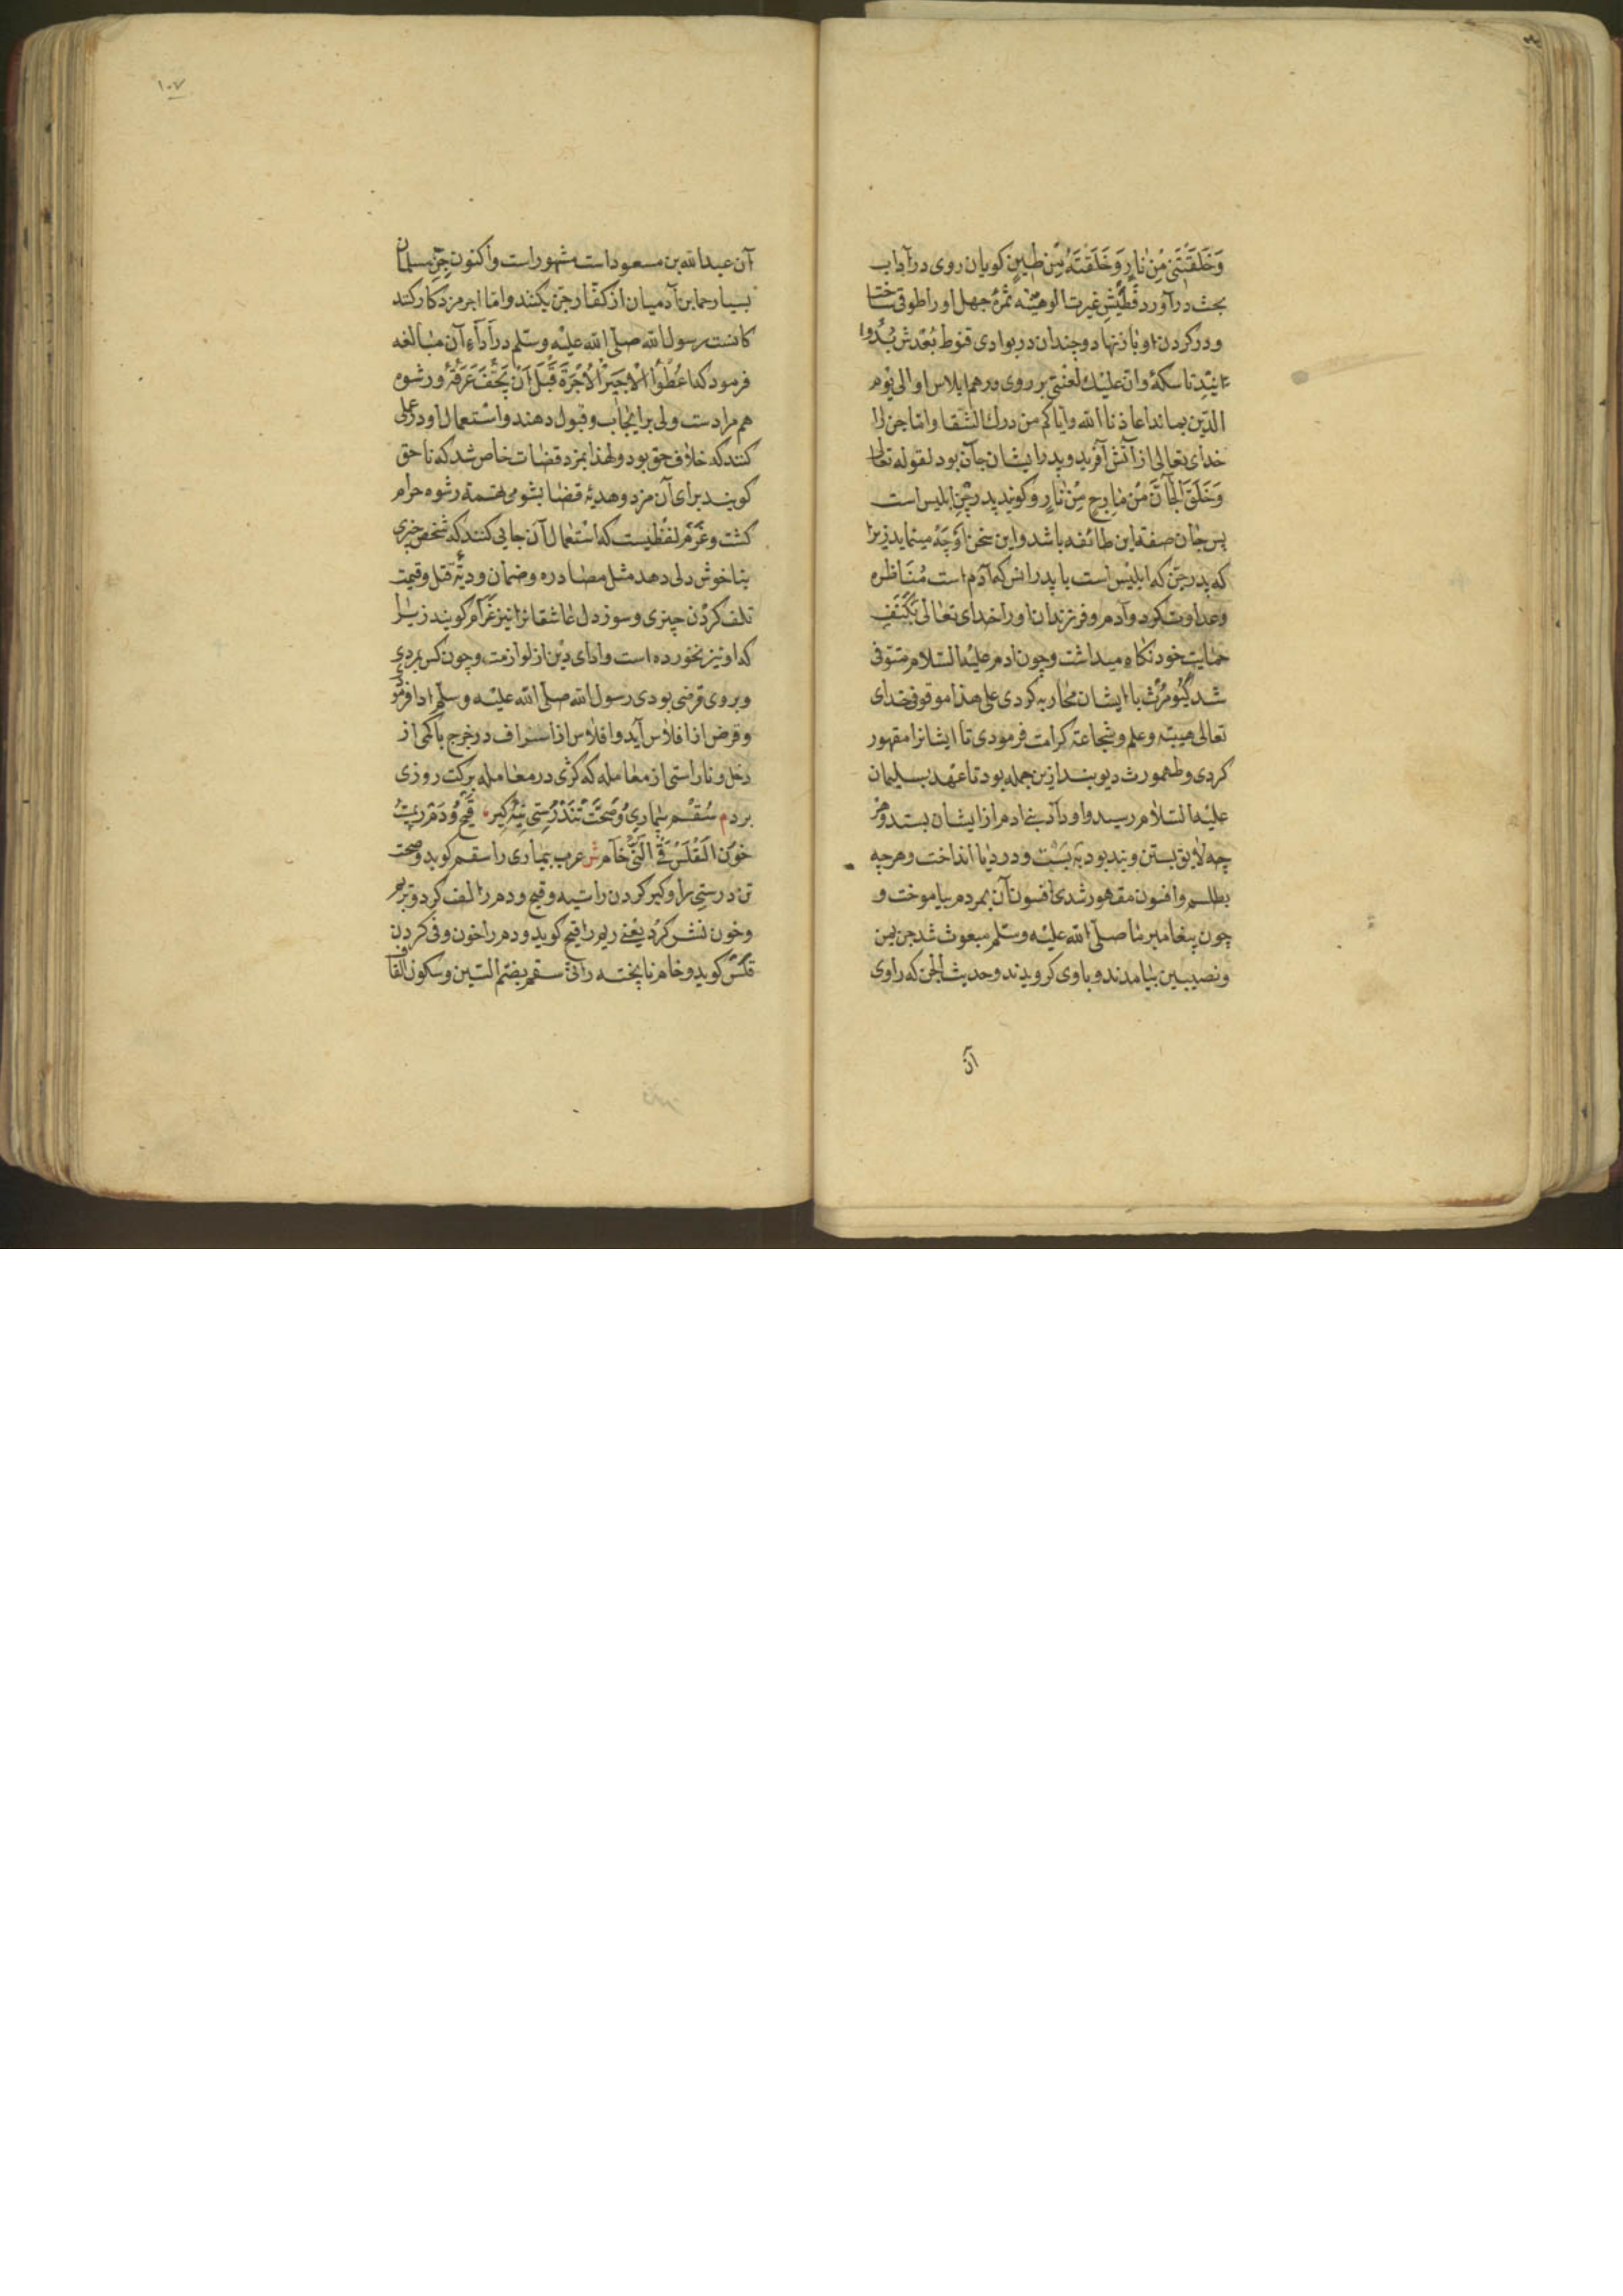 وَخَلَقْتَنِی مِنْ نَارٍ وَخَلَقْتَهُ مِنْ طِینٍ کویان روی در آداب
بحث درآورد غیرت الوهیّته ثمرهٔ جهل اورا طوقی ساخت
و در کردن او باز نهاد و چندان در بوادی قنوط بُعْدش
تا سکهٔ وان علیک لعنتی بر روی درهم ابلاس او الی یوم
الدّین بماند اعاذنا الله وایاکم من درک الشقا وامّا جن را
خدای تعالی از آتش آفرید و پدر ایشان جآن بود لقوله تعالی
وَخَلَقَ الْجَآنَّ مِنْ مَارِجٍ مِنْ نَارٍ و کویند پدر جِن ابلیس است
پس جان صفة این طائفه باشد و این سخن اَوْجَهْ مینماید زیرا
که پدر جنّ که ابلیس است با پدر انس که آدم است مُنَاظره
و عداوت کرد و آدم و فرزندان اورا خدای تعالی بکَنَفِ
حمایت خود نکاه میداشت و چون ادم علیه السّلام متوفی
شد کیُومَرْث با ایشان محاربه کردی علی هذا موقوف خدای
تعالی هیبته و علم و شجاعة کرامت فرمودی تا ایشانرا مقهور
کردی و طهمورث دیوبند ازین جمله بود تا عهد بسلیمان
علیه السّلام رسید و او داد بنی ادم از ایشان بستد و هر
چه لایق بستن و بند بود به بَسْت و در دریا انداخت و هرچه
بطلسم و افسون مقهور شدی افسون آن بمردم بیاموخت و
چون پیغامبر ما صلّی الله علیه وسلّم مبعوث شد جن یمن
و نصیبین بیامدند و باوی کرویدند و حدیث الجن که راوی
آن
۱۰۷
آن عبدالله بن مسعود است مشهور است و اکنون جنّ مسلمان
بسیار حمایت آدمیان از کفّار جن بکنند و امّا اجر مزد کار کند
کانست رسول الله صلّی الله علیه وسلّم در اَدَآءِ آن مبالغه
فرمود که اعْطُوا الْاَجِیرَ الْاُجْرَةَ قَبْلَ اَنْ یَجِفَّ عَرَقُهُ و رشوه
هم مرادست ولی برایجاب و قبول دهند و استعمال او در عملی
کنند که خلاف حق بود و لهذا بمزد قضات خاص شد که ناحق
کویند برای آن مزد و هدیهٔ قضا بشومی تسمهٔ رشوه حرام
کشت و غُرْم لفظیست که استعمال آن جایی کنند که شخص چیزی
بناخوش دلی دهد مثل مصادره و ضمان و دیّهٔ قتل و قیمت
تلف کردن چیزی و سوز دل عاشقانرا نیز غَرَام کویند زیرا
که او نیز نخورده است و ادای دین از لوازمت و چون کس بمردی
و بروی قرضی بودی رسول الله صلّی الله علیه وسلّم ادا فرمودی
و قرض از افلاس آید و افلاس از اسراف در خرج با کمی از
دخل و ناراستی از معامله که کژی در معامله برکت روزی
بردم سُقْم بیماری وَصِحَّت تَنْدُرُسْتی کیر قَیْح وَ دَمْ رِیمُ
خون الْقَلْسُ قَیْ النَّیّ خام ش عرب بیماری را سقم کوید و صحت
تن درستی را و کیر کردن راست و قیح و دم را لف کرد و بریم
و خون نشر کرد یعنی ریم را قیح کوید و دم را خون و قی کردن
قلس کوید و خام ناپخته را نیّ سقم بضم السّین وسکون القاف